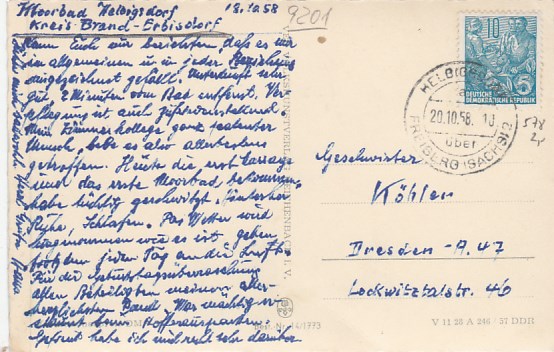 Moorbad Helbigsdorf 18.10.58
Kreis Brand-Erbisdorf
9201
Kann Euch nur berichten, daß es mir
im allgemeinen u. in jeder Beziehung
ausgezeichnet gefällt. Unterkunft sehr
gut 2 Minuten vom Bad entfernt. Ver-
pflegung ist auch zufriedenstellend
Mein Zimmerkollege ganz
Mensch, habe es also allerbestens
getroffen. Heute die erste Massage
und das erste Moorbad bekommen
habe tüchtig geschwitzt,
Ruhe, Schlafen. Das Wetter wird
genommen wie es ist gehen
trotzdem jeden Tag an die Luft
Für die Geburtstagsüberraschung
allen Beteiligten meinen aller-
herzlichsten Dank. War mächtig er-
staunt beim
Gefreut habe ich mich sehr darüber
10
DEUTSCHE
DEMOKRATISCHE REPUBLIK
5
HELBIGSDORF
a
20.10.58
über
FREIBERG (SACHS) 2
578
Geschwister
Köhler
Dresden-A. 47
Lockwitztalstr. 46
Best.-Nr. 14/1373
V 11 28 A 246 / 57 DDR